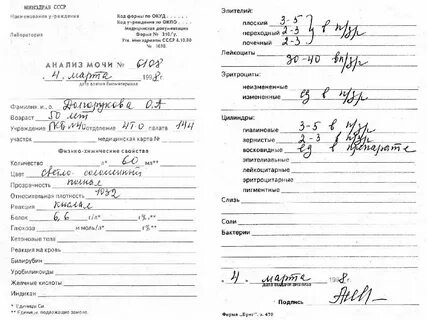 МИНЗДРАВ СССР
Наименование учреждения
Лаборатория
Код формы по ОКУД
Код учреждения по ОКПО
Медицинская документация
Форма № 210/у
Утв. Минздравом СССР 4.10.80
№ 1030
АНАЛИЗ МОЧИ № 6108
4 марта 1998 г.
дата взятия биоматериала
Фамилия, и., о. Долгорукова О.А
Возраст 50 лет
Учреждение ГКБ №40 отделение 4ТО палата 144
участок медицинская карта №
Физико-химические свойства
Количество 60 мл**
Цвет светло соломенный
Прозрачность полная
Относительная плотность 1032
Реакция кислая
Белок 6,6 г/л* г%**
Глюкоза ммоль/л* г%**
Кетоновые тела
Реакция на кровь
Билирубин
Уробилиноиды
Желчные кислоты
Индикан
* Единицы Си
** Единицы, подлежащие замене.
Эпителий:
плоский 3-5 в п/зр
переходный 2-3 в п/зр
почечный 2-3 в п/зр
Лейкоциты 30-40 в п/зр
Эритроциты:
неизмененные
измененные ед в п/зр
Цилиндры:
гиалиновые 3-5 в п/зр
зернистые 2-3 в п/зр
восковидные ед в препарате
эпителиальные
лейкоцитарные
эритроцитарные
пигментные
Слизь
Соли
Бактерии
4 марта 1998 г.
дата выдачи анализа
Подпись